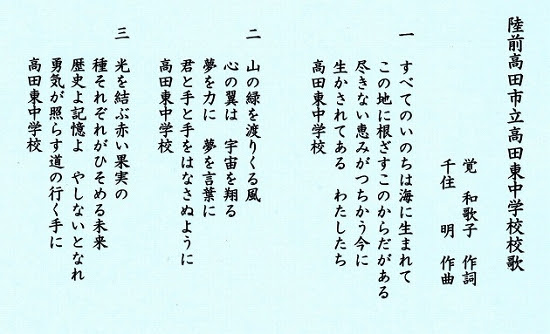 陸前高田市立高田東中学校校歌
覚 和歌子 作詞
千住 明 作曲
一
すべてのいのちは海に生まれて
この地に根ざすこのからだがある
尽きない恵みがつちかう今に
生かされてある わたしたち
高田東中学校
二
山の緑を渡りくる風
心の翼は 宇宙を翔る
夢を力に 夢を言葉に
君と手と手をはなさぬように
高田東中学校
三
光を結ぶ赤い果実の
種それぞれがひそめる未来
歴史よ記憶よ やしないとなれ
勇気が照らす道の行く手に
高田東中学校